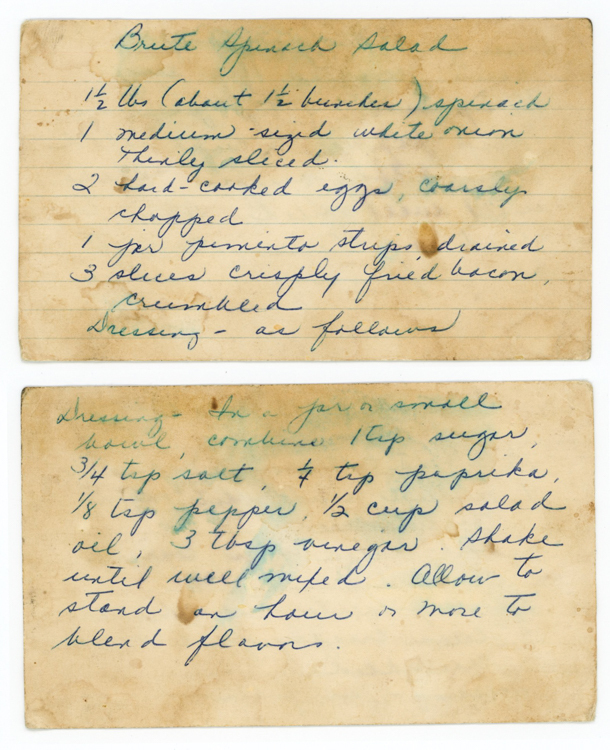 Brute Spinach Salad
1½ lbs (about 1½ bunches) spinach
1 medium-sized white onion
thinly sliced.
2 hard-cooked eggs, coarsely
chopped
1 jar pimento strips, drained
3 slices crisply fried bacon,
crumbled
Dressing - as follows
Dressing - In a jar or small
bowl, combine 1 tsp sugar,
3/4 tsp salt, ¼ tsp paprika,
1/8 tsp pepper, 1/2 cup salad
oil, 3 tbsp vinegar. Shake
until well mixed. Allow to
stand an hour or more to
blend flavors.